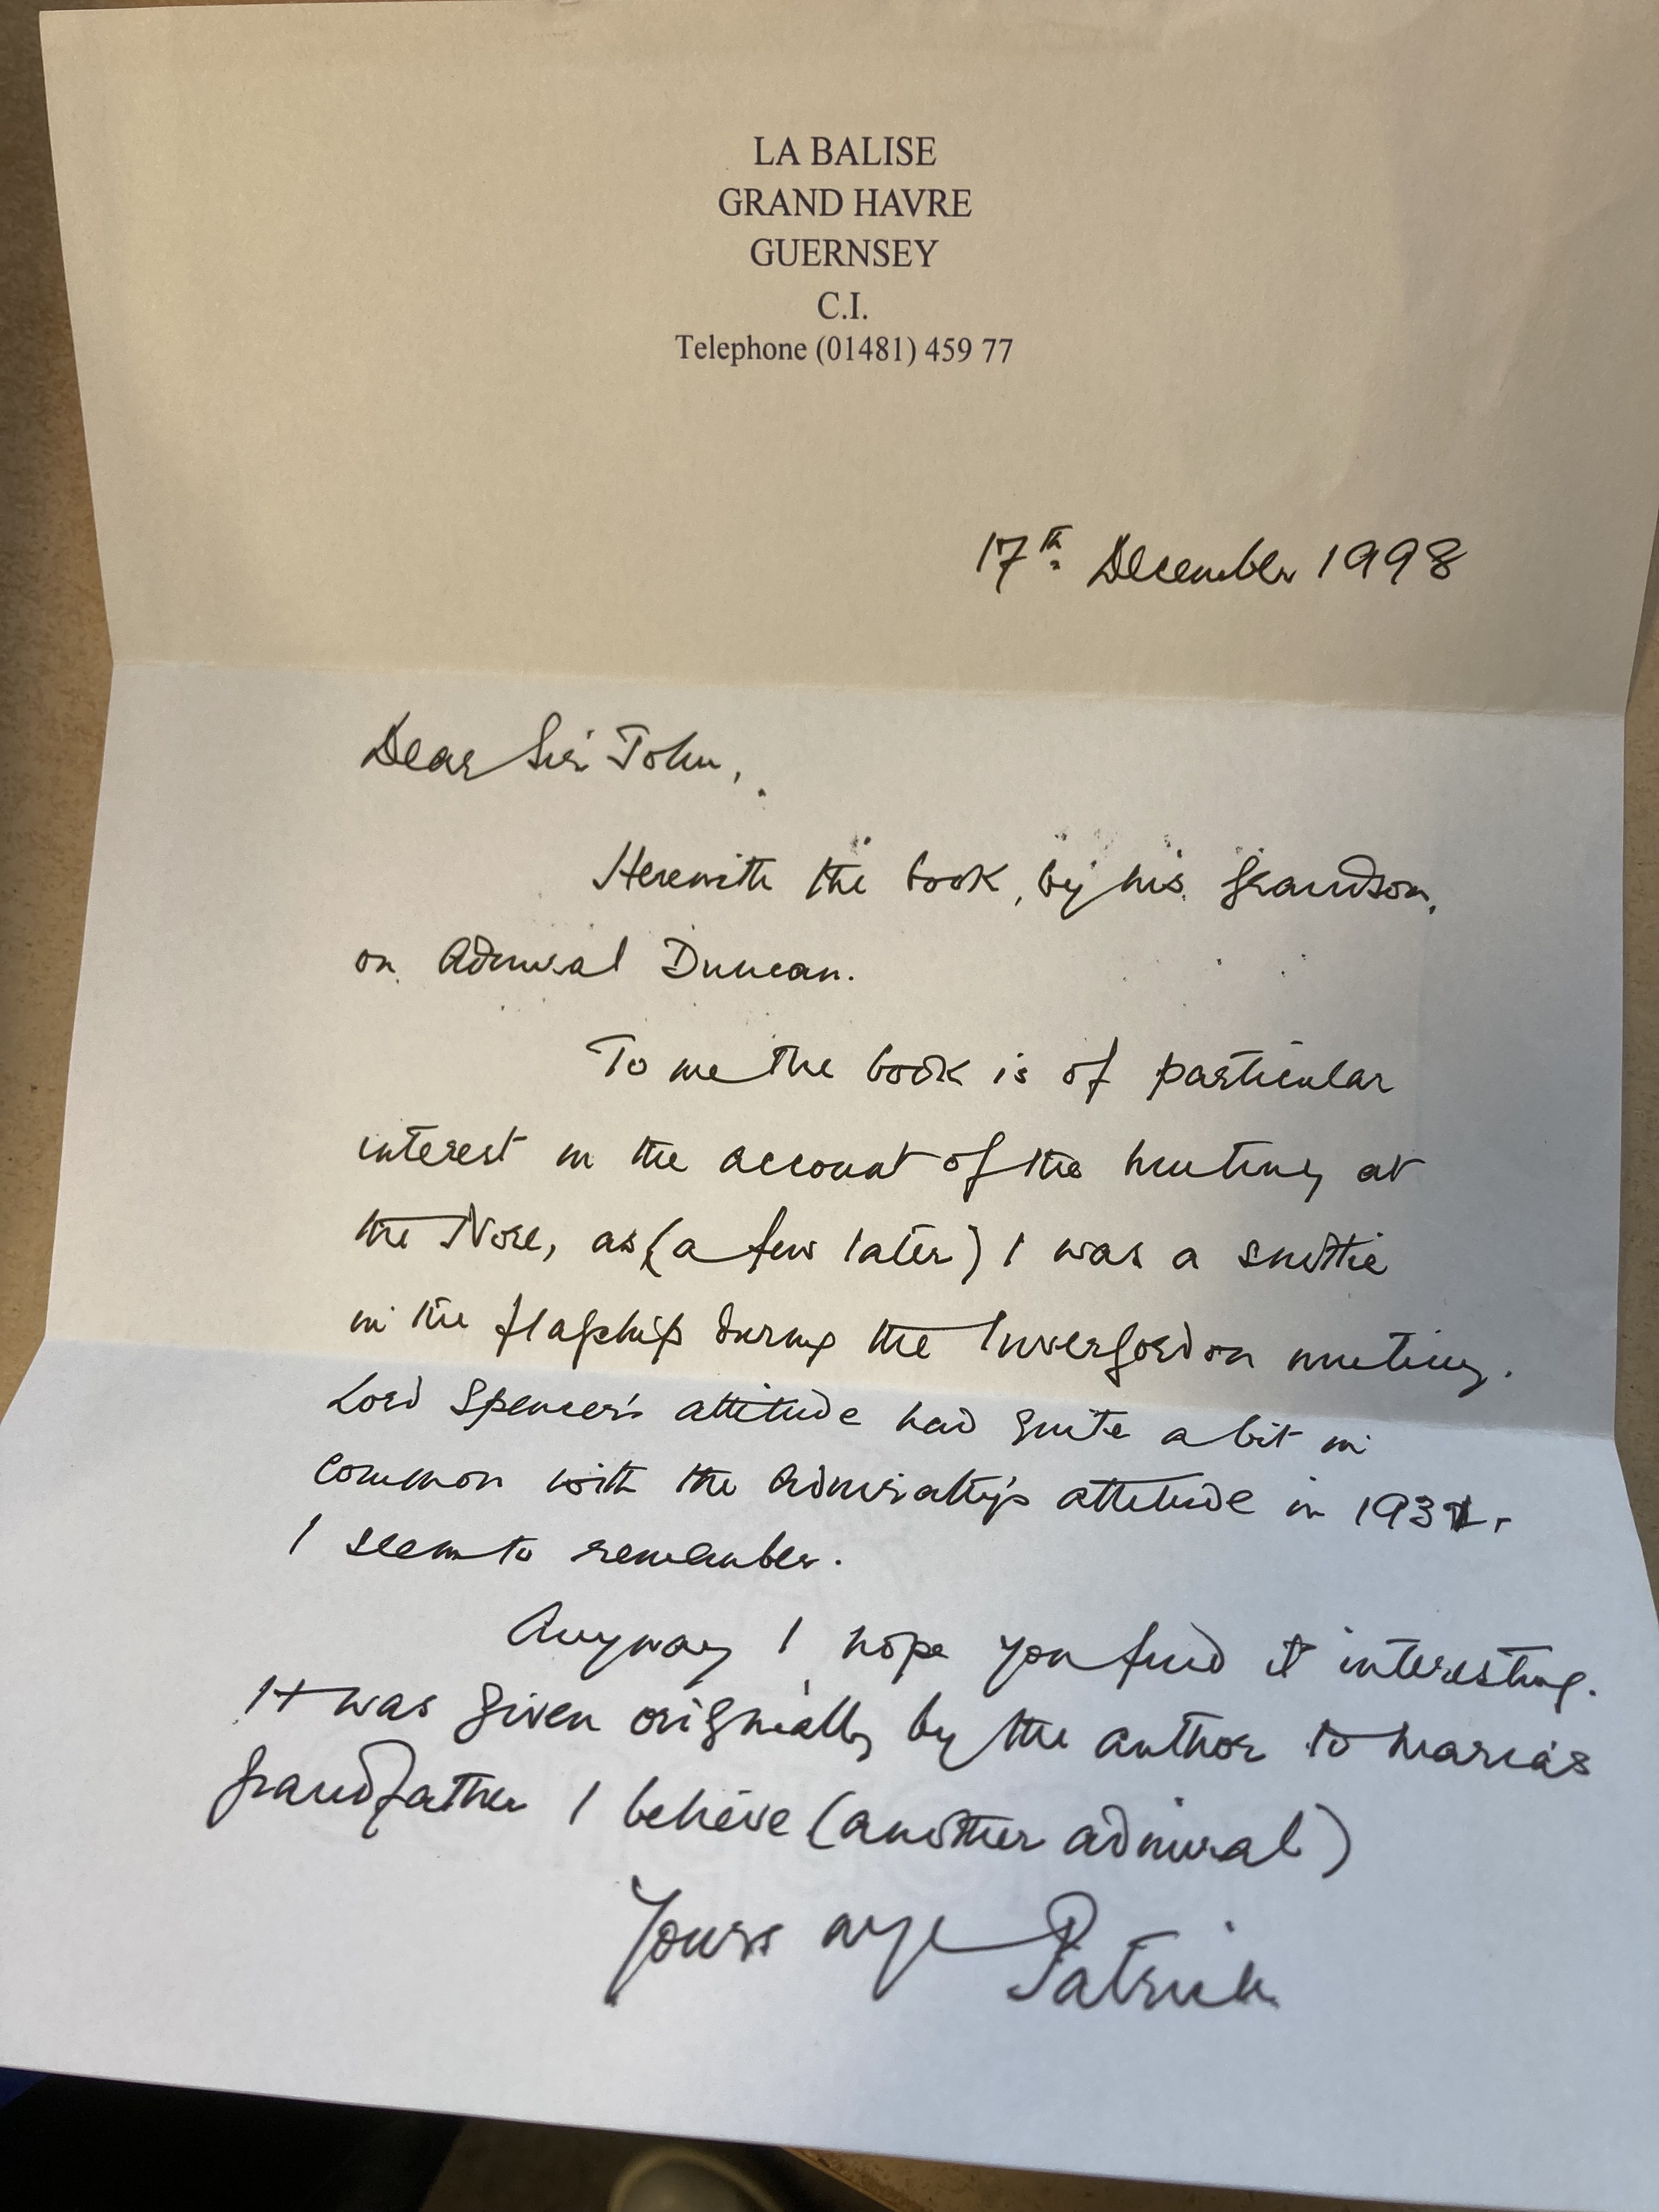 LA BALISE
GRAND HAVRE
GUERNSEY
C.I.
Telephone (01481) 459 77
17th December 1998
Dear Sir John,
Herewith the book, by his grandson,
on Admiral Duncan.
To me the book is of particular
interest in the account of the mutiny at
the Nore, as (a few later) I was a snottie
in the flagship during the Invergordon mutiny.
Lord Spencer's attitude had quite a bit in
common with the Admiralty's attitude in 1931.
I seem to remember.
Anyway I hope you find it interesting.
It was given originally by the author to Maria's
grandfather I believe (another admiral)
Yours aye Patrick